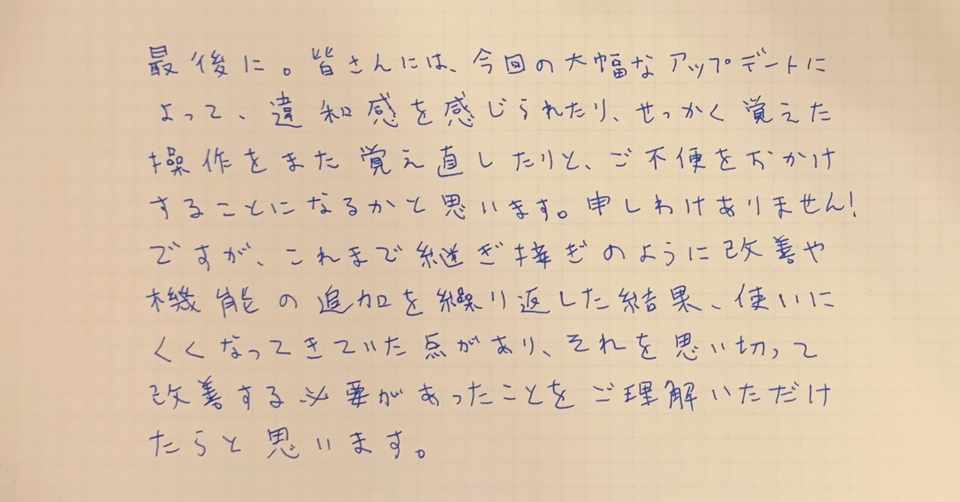 最後に。皆さんには、今回の大幅なアップデートに
よって、違和感を感じられたり、せっかく覚えた
操作をまた覚え直したりと、ご不便をおかけ
することになるかと思います。申しわけありません!
ですが、これまで継ぎ接ぎのように改善や
機能の追加を繰り返した結果、使いに
くくなってきていた点があり、それを思い切って
改善する必要があったことをご理解いただけ
たらと思います。